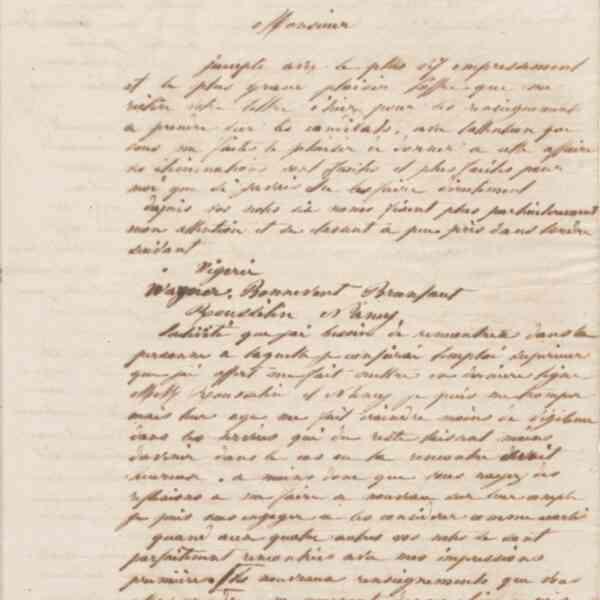 Monsieur
j'accepte avec le plus vif empressement
et le plus grand plaisir l'offre que me
votre lettre d'hier pour les renseignements
a prendre sur les candidats, avec l'attention que
vous me faites le plaisir de donner a cette affaire
les éliminations sont faciles et plus faciles pour
moi que si je devais les faire directement
depuis vos notes six noms fixent plus particulierement
mon attention et se classent a peu près dans l'ordre
suivant
Vigerie
Wagner. Bonnevent Branfaut
Rousselin Nancy
l'activité que j'ai besoin de rencontrer dans la
personne a laquelle je confierai l'emploi superieur
que j'ai offert me fait mettre en derniere ligne
MM. Rousselin et Nancy je puis me tromper
mais leur age me fait craindre moins de
dans les qui du reste moins
d'avenir dans le cas ou la rencontre serait
heureuse. a moins donc que vous n'ayez des
reflexions a me faire a nouveau sur leur compte
je puis vous engager a les considerer comme
quand aux quatre autres vos notes se sont
parfaitement rencontrées avec mes impressions
premières les nouveaux renseignements que vous